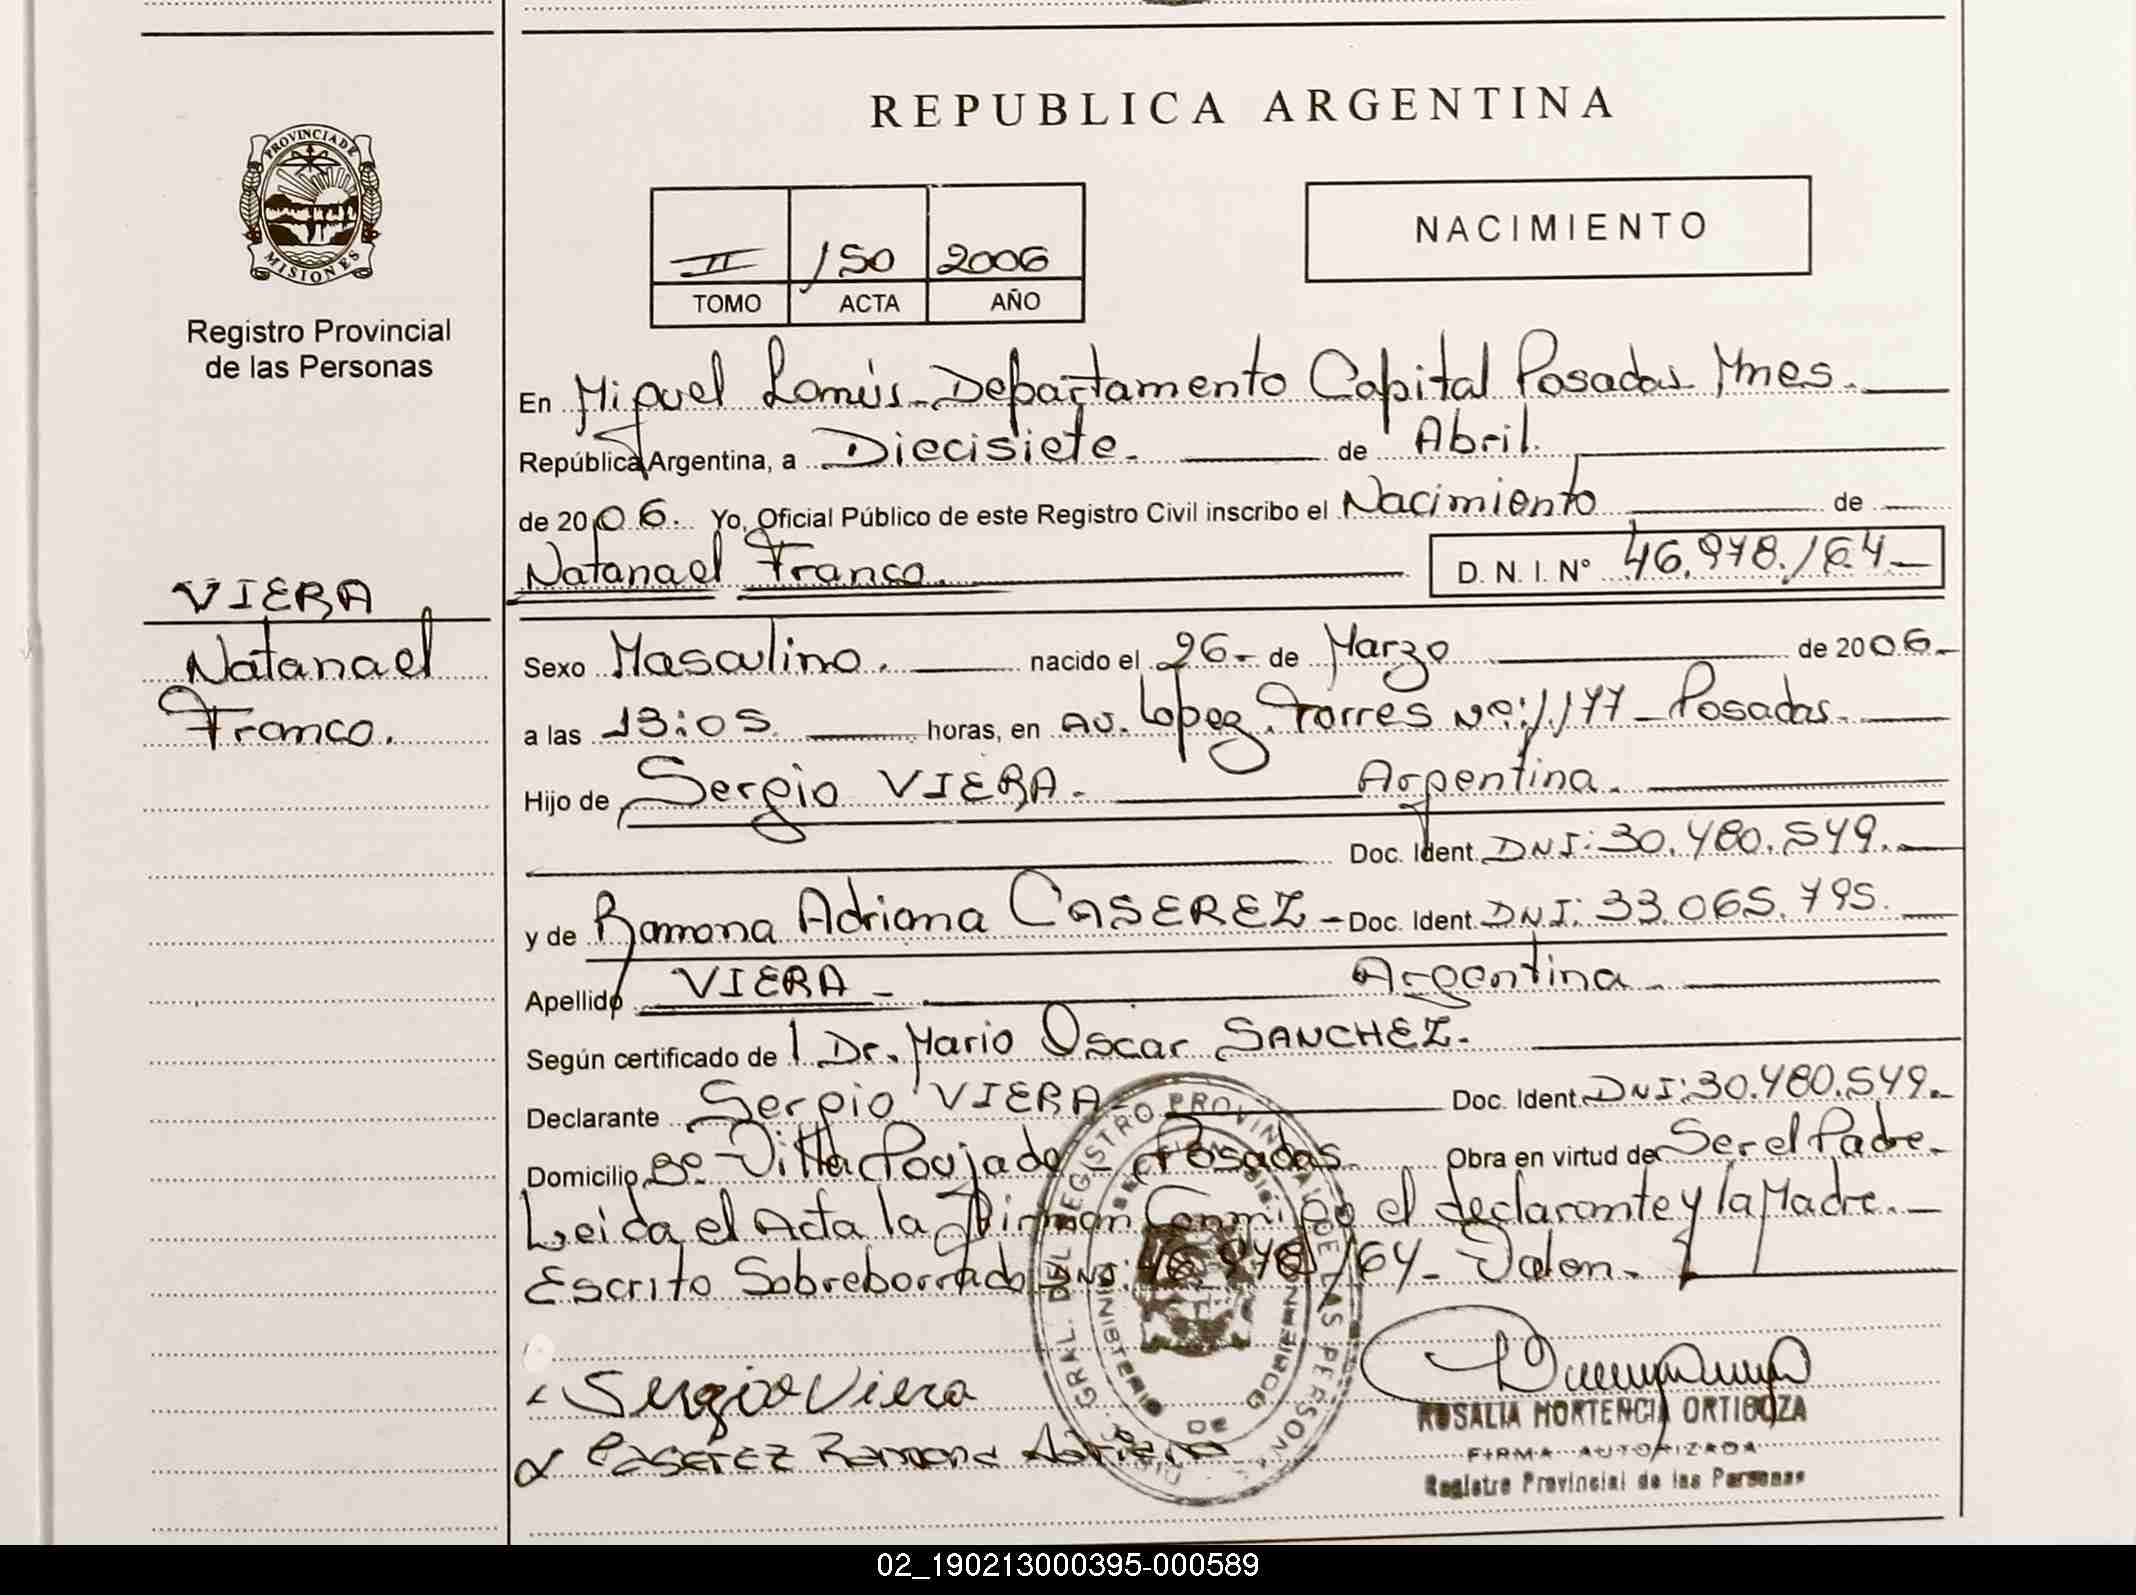 REPUBLICA ARGENTINA
PROVINCIA DE
MISIONES
Registro Provincial
de las Personas
II 150 2006
TOMO ACTA AÑO
NACIMIENTO
En Miguel Lanús - Departamento Capital Posadas Mnes.
República Argentina, a Diecisiete. de Abril.
de 2006. Yo, Oficial Público de este Registro Civil inscribo el Nacimiento de
Natanael Franco. D. N. I. Nº 46.978.164
VIERA
Natanael
Franco.
Sexo Masculino. nacido el 26 - de Marzo de 2006 -
a las 13:05 horas, en AV. Lopez Torres Nº: 1.177 - Posadas.
Hijo de Sergio VIERA - Argentina.
Doc. Ident. DNI: 30.480.549.
y de Ramona Adriana CASEREZ - Doc. Ident. DNI: 33.065.795.
Apellido VIERA - Argentina
Según certificado de Dr. Mario Oscar SANCHEZ.
Declarante Sergio VIERA - Doc. Ident. DNI: 30.480.549.
Domicilio Bº - Villa Poujade - Posadas. Obra en virtud de Ser el Padre.
Leida el Acta la Firman Conmigo el declarante y la Madre.
Escrito Sobreborrado DNI: 46.978.164 - Valen.
Sergio Viera
Caserez Ramona Adriana
ROSALIA HORTENCIA ORTIGOZA
FIRMA AUTORIZADA
Registro Provincial de las Personas
GRAL. DEL REGISTRO PROVINCIAL DE LAS PERSONAS
02_190213000395-000589